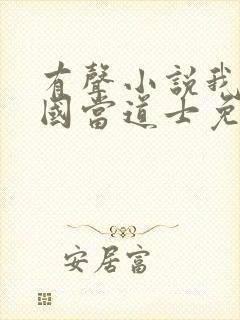 有聲小說我
國當道士免
安居富